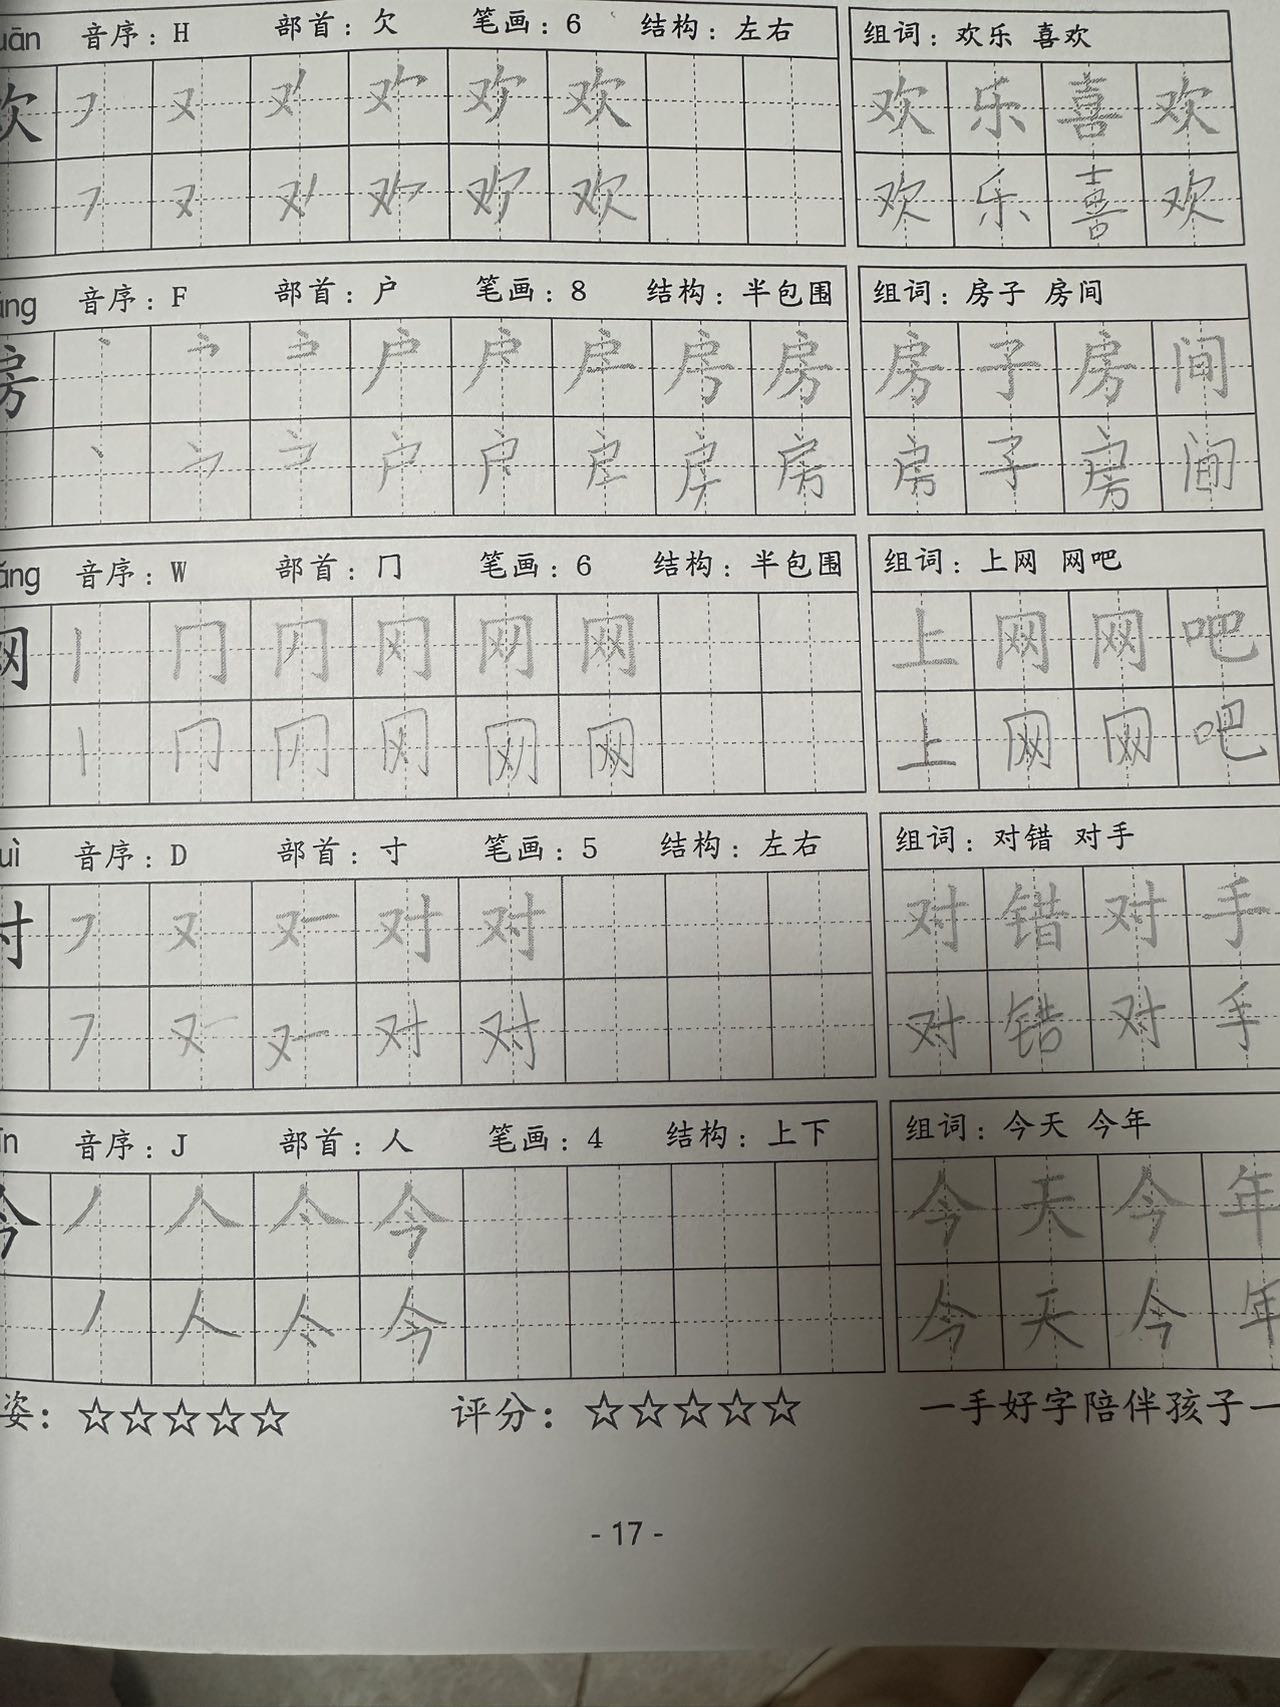 uān 音序：H 部首：欠 笔画：6 结构：左右 组词：欢乐 喜欢
欢 フ 又 欢 欢 乐 喜 欢
フ 又 欢 欢 乐 喜 欢
áng 音序：F 部首：户 笔画：8 结构：半包围 组词：房子 房间
房 丶 户 房 房 子 房 间
丶 户 房 房 子 房 间
ǎng 音序：W 部首：冂 笔画：6 结构：半包围 组词：上网 网吧
网 丨 冂 冈 网 上 网 网 吧
丨 冂 冈 网 上 网 网 吧
uì 音序：D 部首：寸 笔画：5 结构：左右 组词：对错 对手
对 フ 又 对 对 错 对 手
フ 又 对 对 错 对 手
īn 音序：J 部首：人 笔画：4 结构：上下 组词：今天 今年
今 丿 人 亽 今 今 天 今 年
丿 人 亽 今 今 天 今 年
姿：☆☆☆☆☆ 评分：☆☆☆☆☆ 一手好字陪伴孩子一
- 17 -